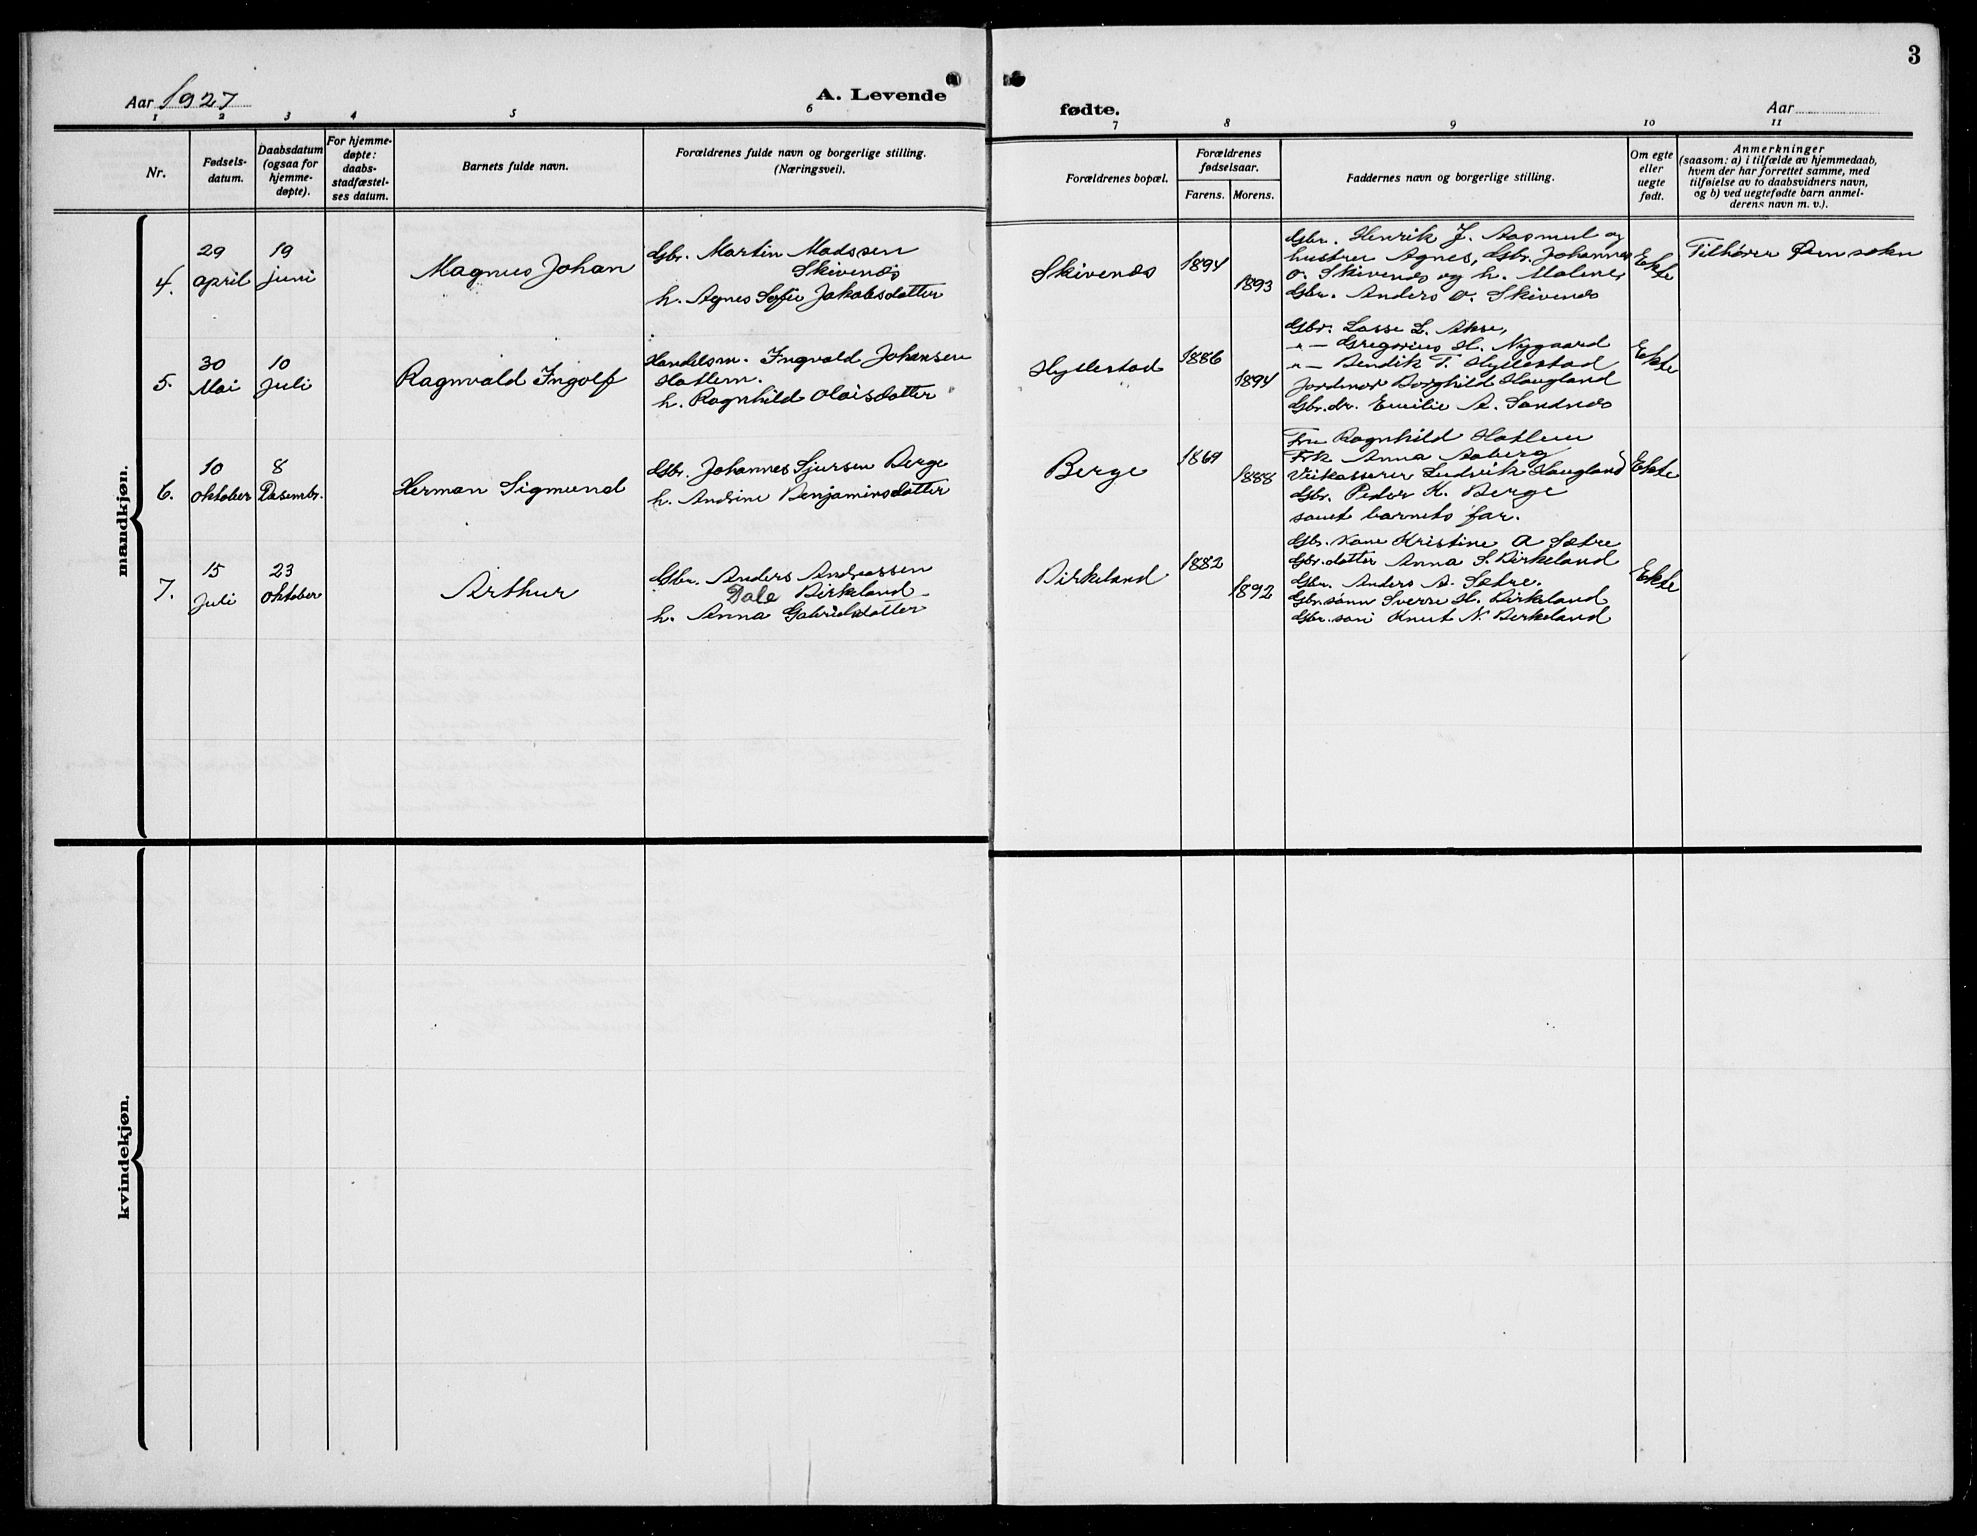 3
Aar 1927
A. Levende
fødte.
Aar
1 2 3 4 5 6 7 8 9 10 11
Nr.
Fødsels-
datum.
Daabsdatum
(ogsaa for
hjemme-
døpte).
For hjemme-
døpte:
daabs-
stadfæstel-
ses datum.
Barnets fulde navn.
Forældrenes fulde navn og borgerlige stilling.
(Næringsvei).
Forældrenes bopæl.
Forældrenes
fødselsaar.
Farens. Morens.
Faddernes navn og borgerlige stilling.
Om egte
eller
uegte
født.
Anmerkninger
(saasom: a) i tilfælde av hjemmedaab,
hvem der har forrettet samme, med
tilføielse av to daabsvidners navn,
og b) ved uegtefødte barn anmel-
derens navn m. v.).
mandkjøn.
4.
29
april
19
juni
Magnus Johan
Gbr. Martin Madssen
Skivenes
h. Agnes Sofie Jakobsdatter
Skivenes
1894
1893
Gbr. Henrik J. Aasmul og
hustru Agnes, Gbr. Johannes
O. Skivenes og h. Malene,
Gbr. Anders O. Skivenes
Ekte
Tilhører Øen sokn
5.
30
Mai
10
Juli
Ragnvald Ingolf
Handelsm. Ingvald Johansen
Hatlem.
h. Ragnhild Olaisdatter
Hyllestad
1886
1894
Gbr. Lasse L. Akse,
-"- Gregorius H. Nygaard
-"- Bendik T. Hyllestad
Jordmor Borghild Haugland
Gbr.dr. Emilie A. Sandnes
Ekte
6.
10
oktober
8
Desembr.
Herman Sigmund
Gbr. Johannes Sjursen Berge
h. Andrine Benjaminsdatter
Berge
1869
1888
Fru Ragnhild Hatlem
Frk Anna Aaberg
Ludvik Haugland
Gbr. Peder K. Berge
samt barnets far.
Ekte
7.
15
Juli
23
oktober
Arthur
Gbr. Anders Andreassen
Dale Birkeland
h. Anna Gabrielsdatter
Birkeland
1882
1892
Gbr. kone Kristine A Sætre
Gbr.datter Anna S. Birkeland
Gbr. Anders A. Sætre.
Gbr.sønn Sverre H. Birkeland
Gbr. søn Knut N. Birkeland
Ekte
kvindekjøn.